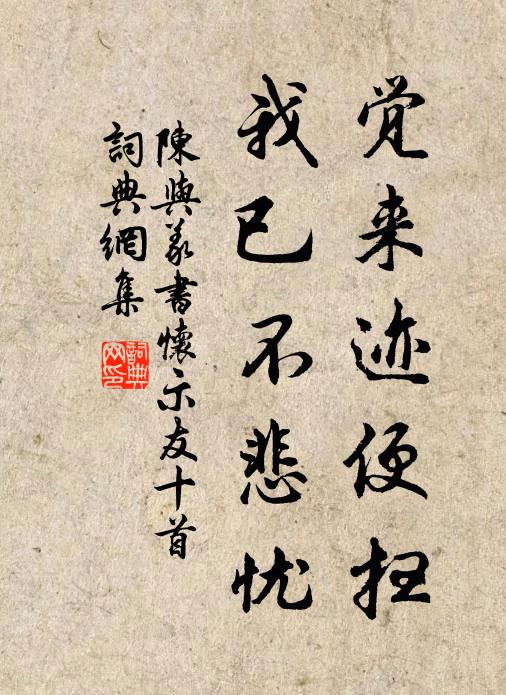 觉来迹便扫
我已不悲忧
陳與義書懷示友十首
詞典網集
詞典网印